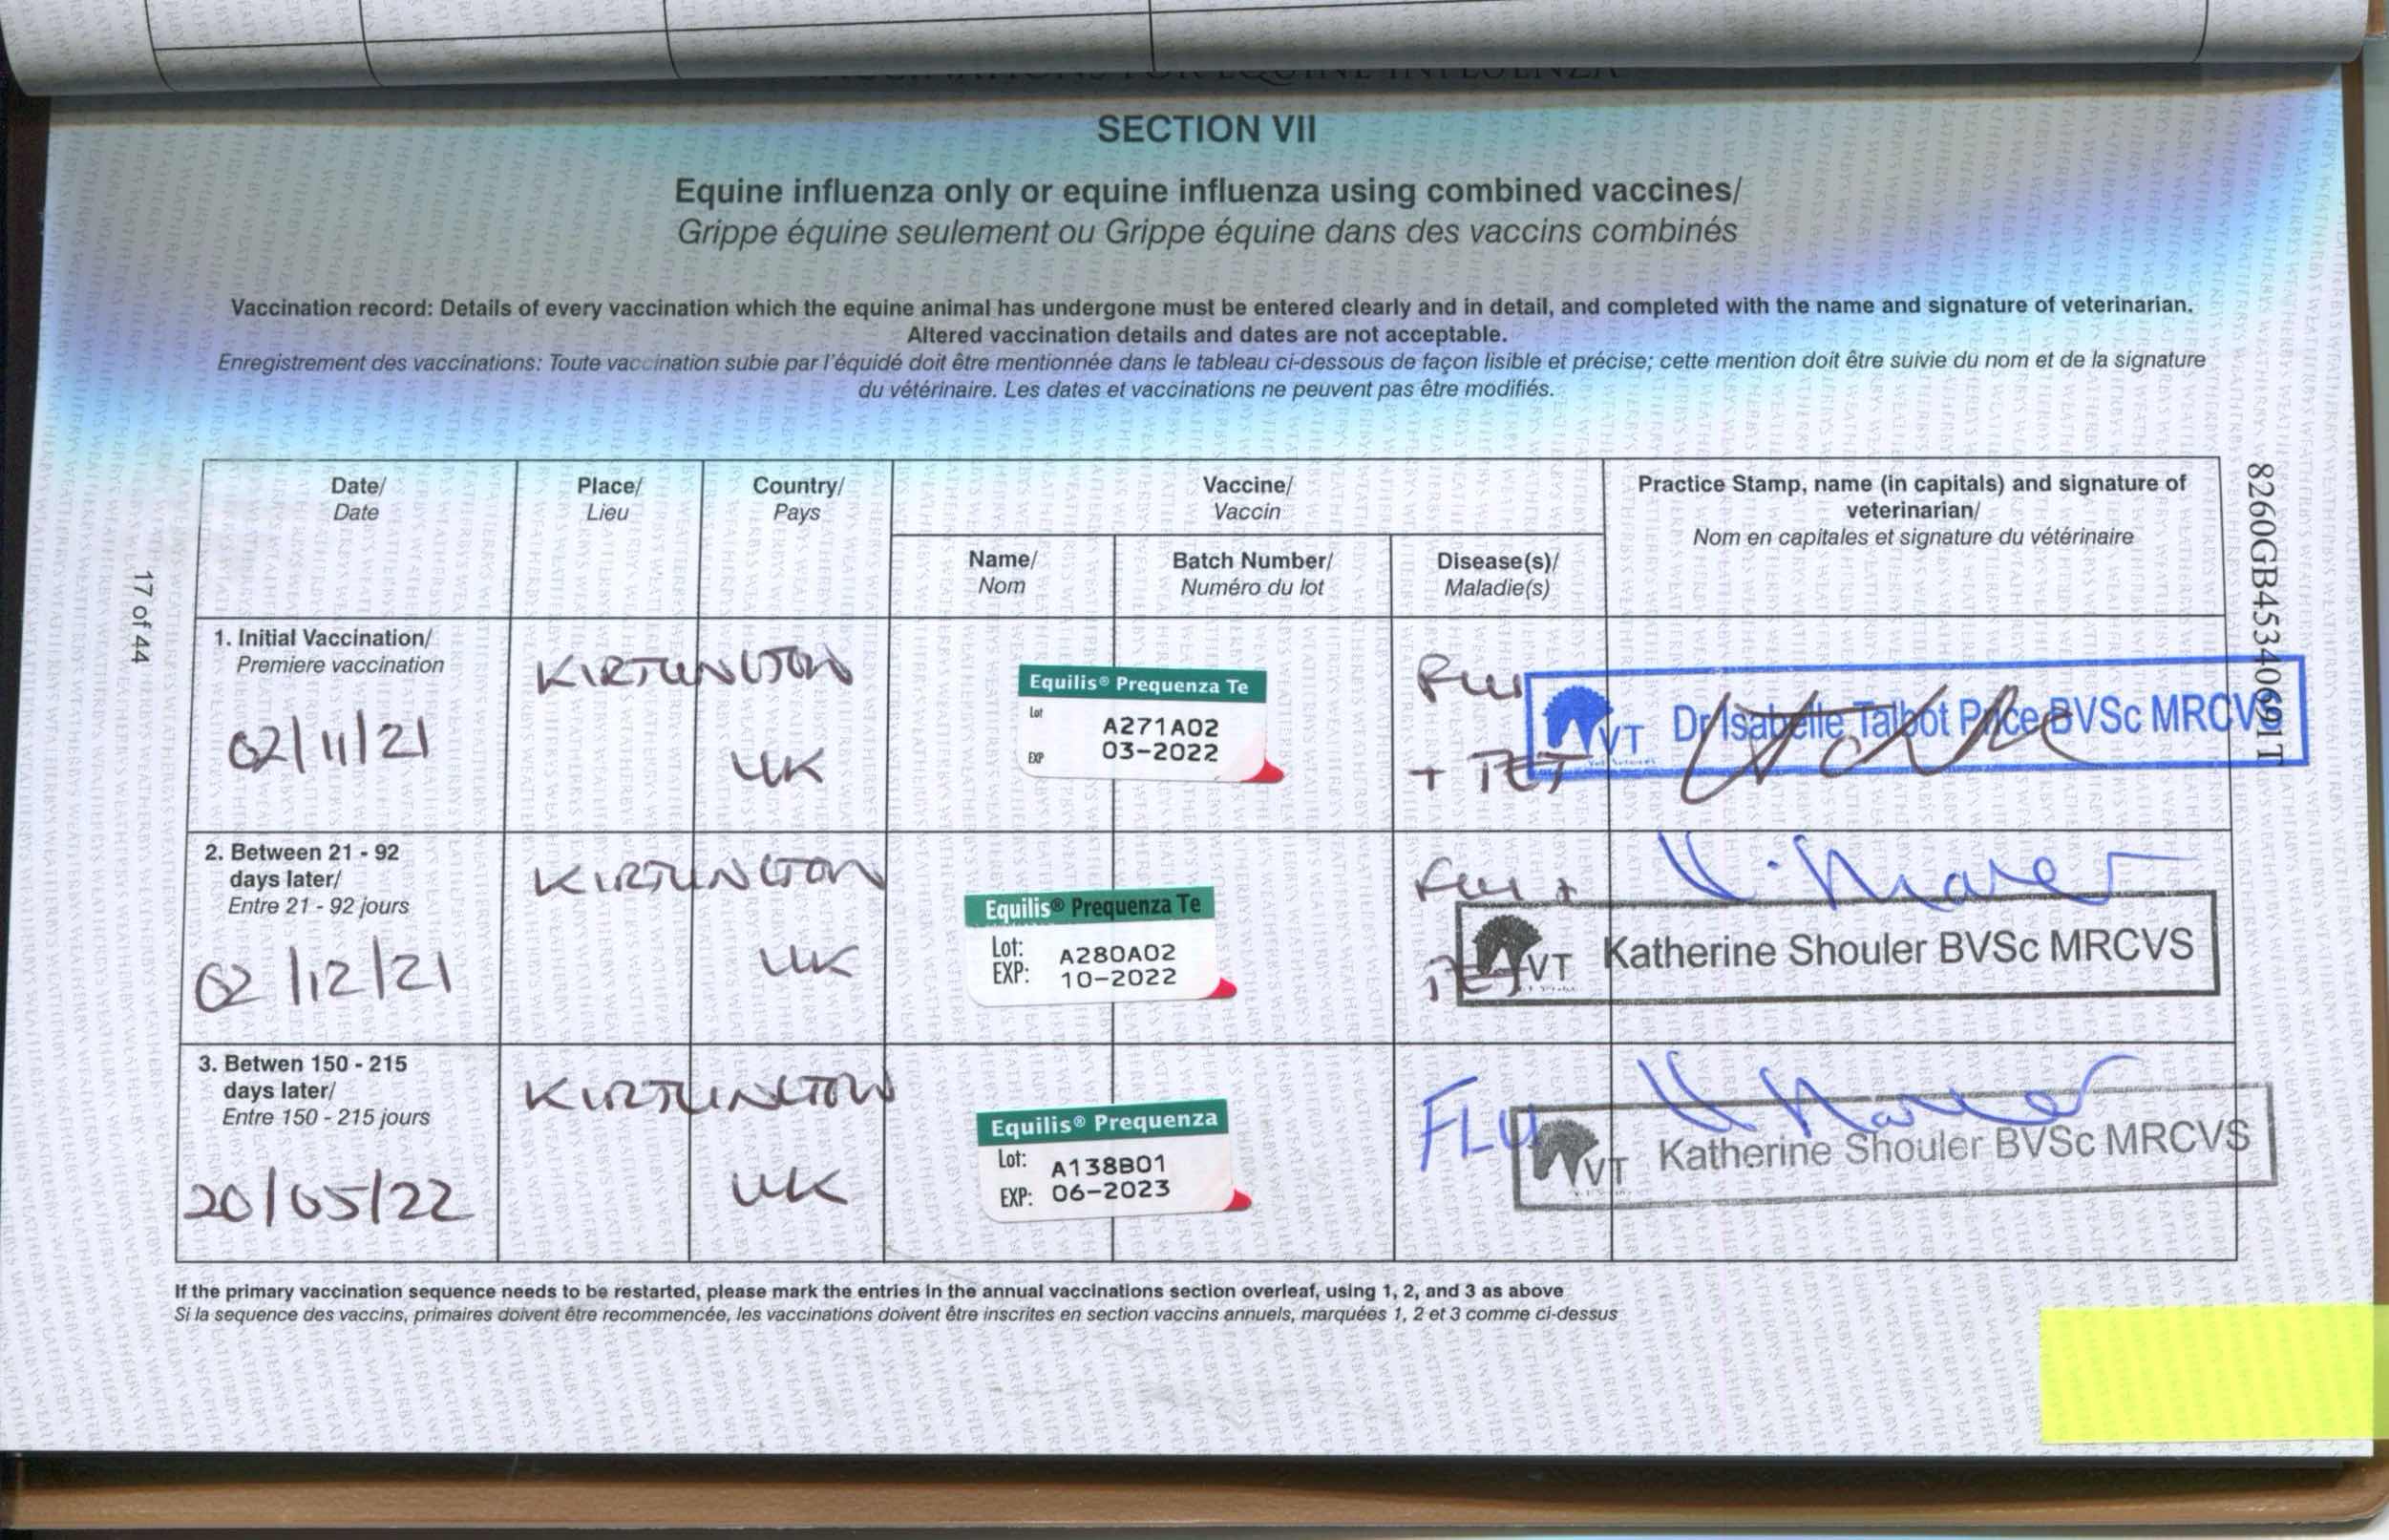 SECTION VII
Equine influenza only or equine influenza using combined vaccines/
Grippe équine seulement ou Grippe équine dans des vaccins combinés
Vaccination record: Details of every vaccination which the equine animal has undergone must be entered clearly and in detail, and completed with the name and signature of veterinarian.
Altered vaccination details and dates are not acceptable.
Enregistrement des vaccinations: Toute vaccination subie par l'équidé doit être mentionnée dans le tableau ci-dessous de façon lisible et précise; cette mention doit être suivie du nom et de la signature
du vétérinaire. Les dates et vaccinations ne peuvent pas être modifiés.
Date/
Date
Place/
Lieu
Country/
Pays
Vaccine/
Vaccin
Name/
Nom
Batch Number/
Numéro du lot
Disease(s)/
Maladie(s)
Practice Stamp, name (in capitals) and signature of
veterinarian/
Nom en capitales et signature du vétérinaire
1. Initial Vaccination/
Premiere vaccination
02/11/21
KIRTLINGTON
UK
Equilis® Prequenza Te
Lot A271A02
EXP 03-2022
Flu
+ TET
VT Dr Isabelle Talbot Price BVSc MRCVS
2. Between 21 - 92
days later/
Entre 21 - 92 jours
02/12/21
KIRTLINGTON
UK
Equilis® Prequenza Te
Lot: A280A02
EXP: 10-2022
Flu +
TET
VT Katherine Shouler BVSc MRCVS
3. Betwen 150 - 215
days later/
Entre 150 - 215 jours
20/05/22
KIRTLINGTON
UK
Equilis® Prequenza
Lot: A138B01
EXP: 06-2023
FLU
VT Katherine Shouler BVSc MRCVS
If the primary vaccination sequence needs to be restarted, please mark the entries in the annual vaccinations section overleaf, using 1, 2, and 3 as above
Si la sequence des vaccins, primaires doivent être recommencée, les vaccinations doivent être inscrites en section vaccins annuels, marquées 1, 2 et 3 comme ci-dessus
17 of 44
8260GB45340691T